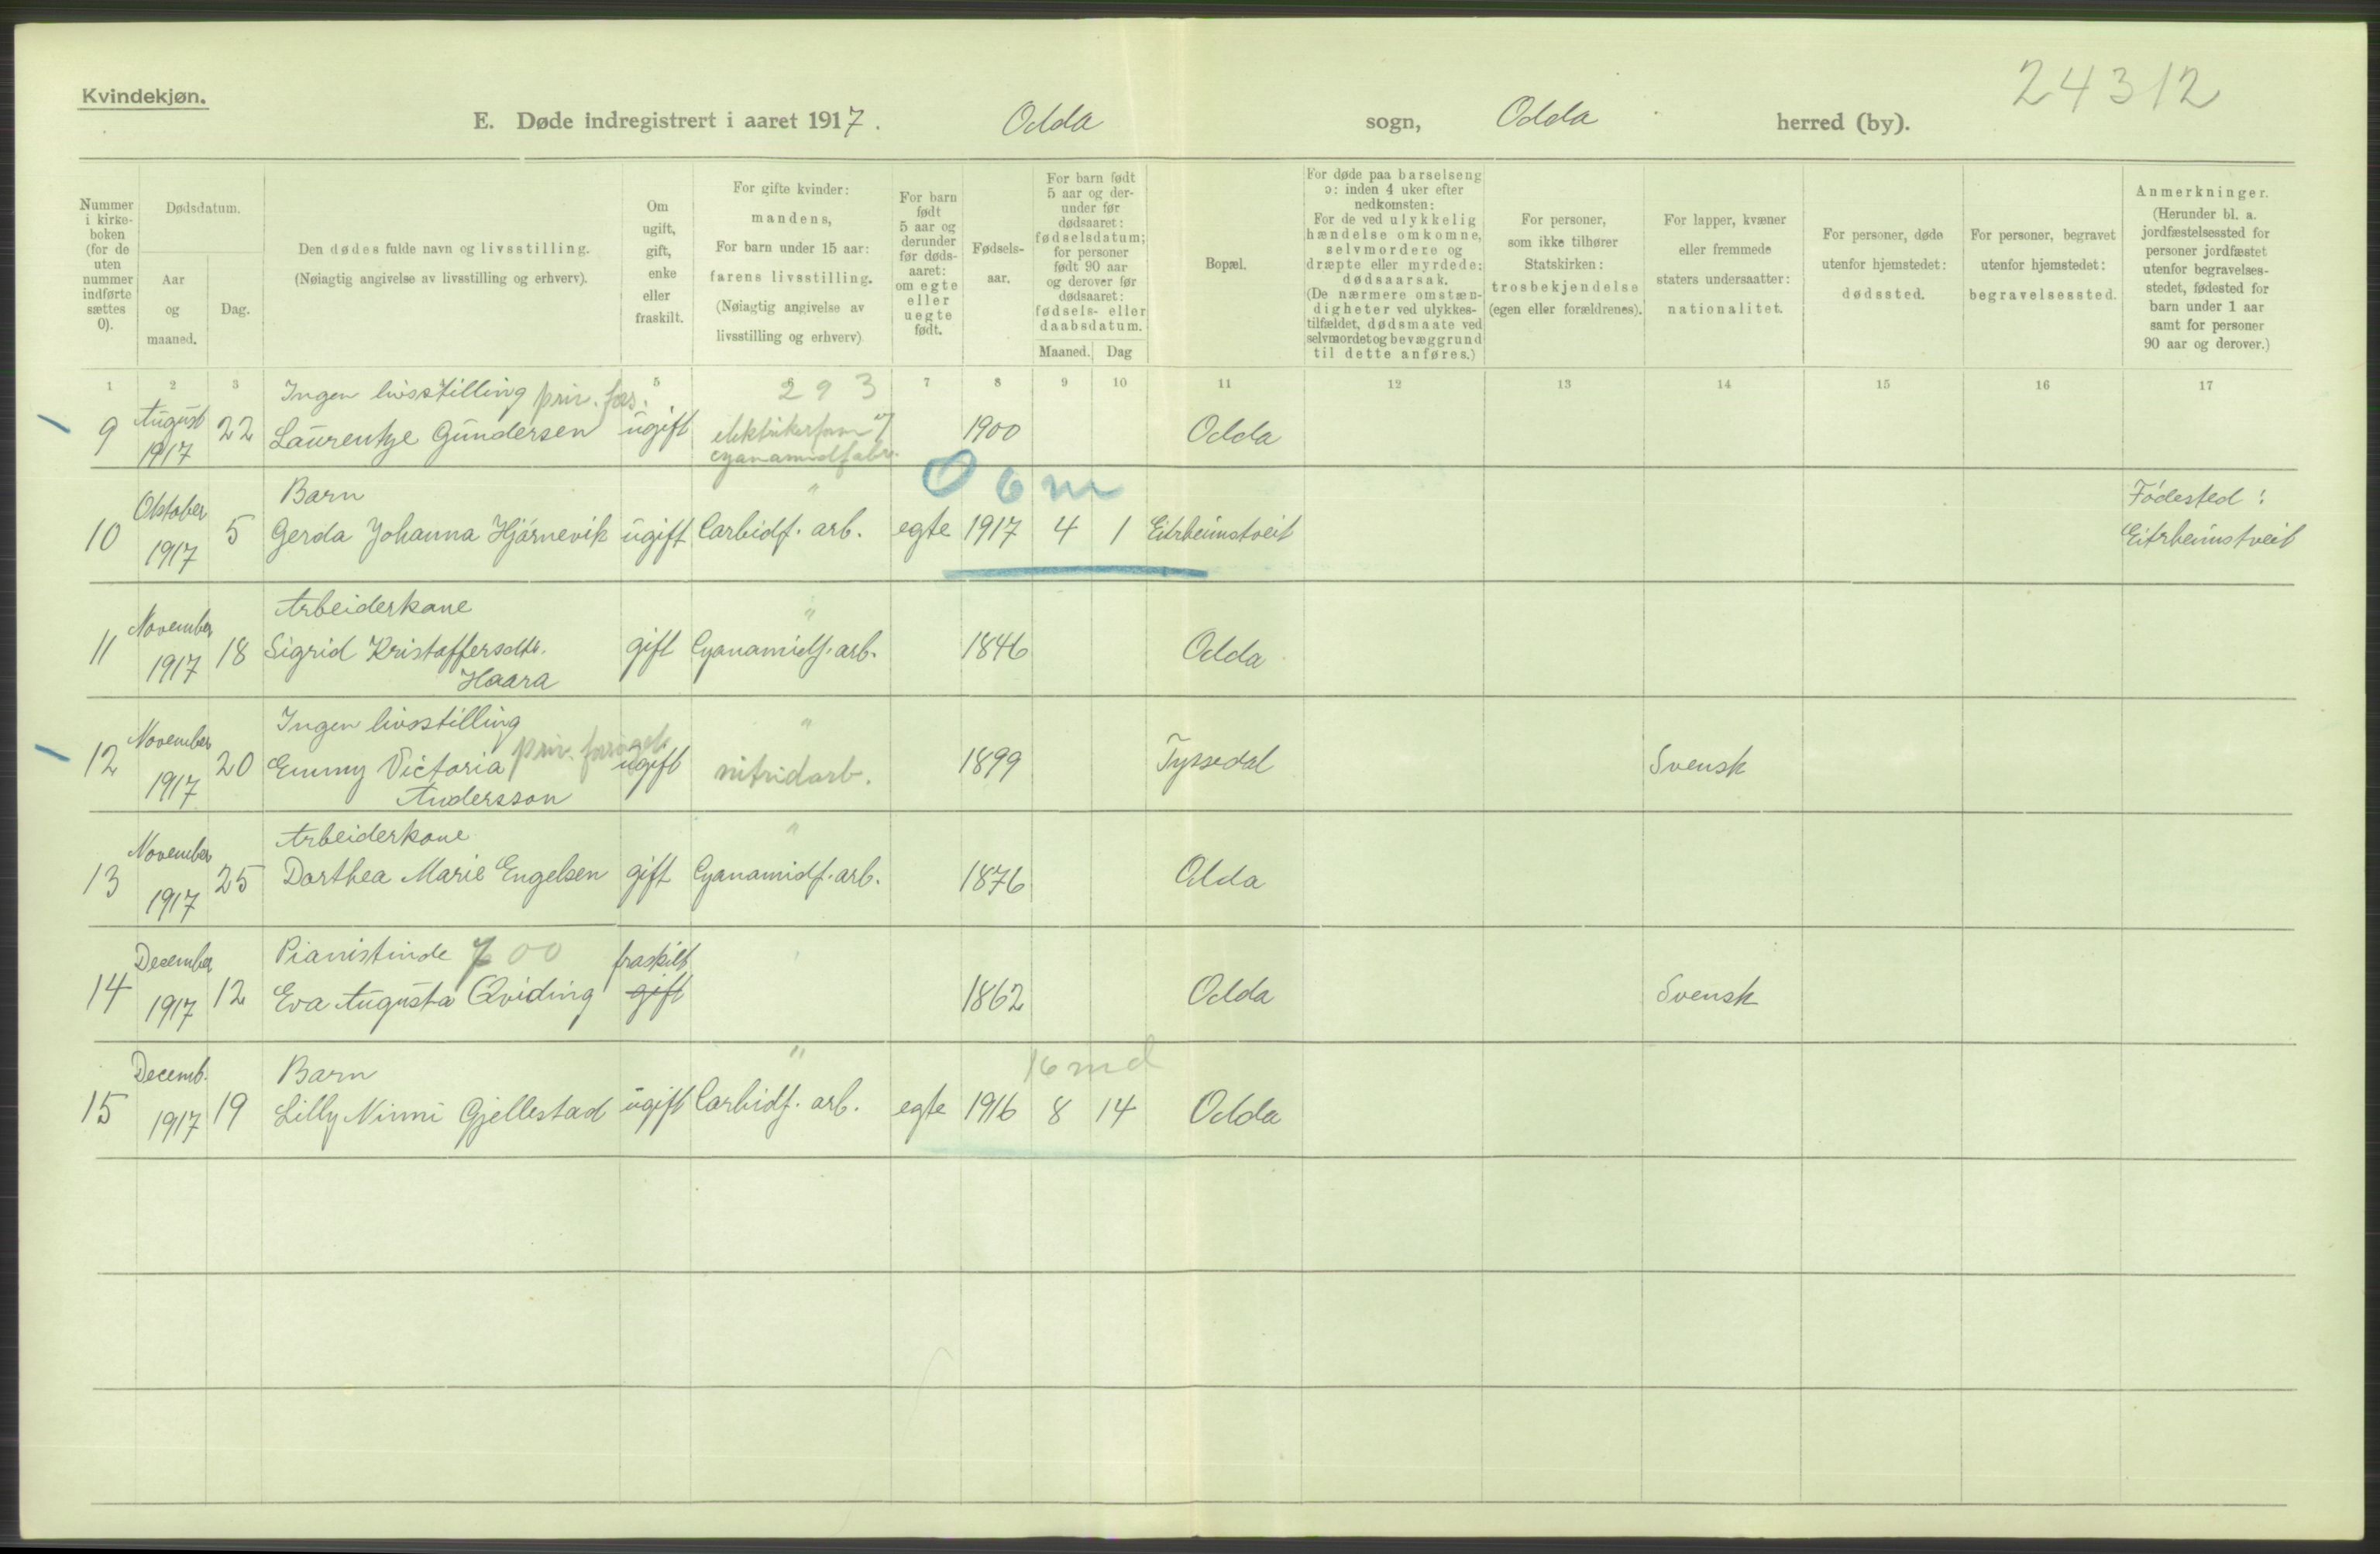 Kvindekjøn.
24312
E. Døde indregistrert i aaret 1917. Odda sogn, Odda herred (by).
Nummer i kirke-boken (for de uten nummer indførte sættes 0).
Dødsdatum.
Aar og maaned.
Dag.
Den dødes fulde navn og livsstilling.
(Nøiagtig angivelse av livsstilling og erhverv).
Om ugift, gift, enke eller fraskilt.
For gifte kvinder: mandens,
For barn under 15 aar: farens livsstilling.
(Nøiagtig angivelse av livsstilling og erhverv)
For barn født 5 aar og derunder før døds-aaret: om egte eller uegte født.
Fødsels-aar.
For barn født 5 aar og der-under før dødsaaret: fødselsdatum; for personer født 90 aar og derover før dødsaaret: fødsels- eller daabsdatum.
Maaned. Dag
Bopæl.
For døde paa barselseng ɔ: inden 4 uker efter nedkomsten:
For de ved ulykkelig hændelse omkomne, selvmordere og dræpte eller myrdede: dødsaarsak.
(De nærmere omstæn-digheter ved ulykkes-tilfældet, dødsmaate ved selvmordet og bevæggrund til dette anføres.)
For personer, som ikke tilhører Statskirken: trosbekjendelse (egen eller forældrenes).
For lapper, kvæner eller fremmede staters undersaatter: nationalitet.
For personer, døde utenfor hjemstedet: dødssted.
For personer, begravet utenfor hjemstedet: begravelsessted.
Anmerkninger.
(Herunder bl. a. jordfæstelsessted for personer jordfæstet utenfor begravelses-stedet, fødested for barn under 1 aar samt for personer 90 aar og derover.)
1 2 3 5 7 8 9 10 11 12 13 14 15 16 17
Ingen livsstilling priv. fors. 293
9 August 1917 22 Laurentze Gundersen ugift elektrikerform v/ cyanamidfabr. 1900 Odda
0 6 m
Barn " Fødested:
10 Oktober 1917 5 Gerda Johanna Hjørnevik ugift Carbidf. arb. egte 1917 4 1 Eitrheimstveit Eitrheimstveit
Arbeiderkone "
11 November 1917 18 Sigrid Kristoffersdtr. Haara gift Cyanamidf. arb. 1846 Odda
Ingen livsstilling priv. forsørget "
12 November 1917 20 Emmy Victoria Andersson ugift nitridarb. 1899 Tyssedal Svensk
Arbeiderkone "
13 November 1917 25 Dorthea Marie Engelsen gift Cyanamidf. arb. 1876 Odda
Pianistinde 700 fraskilt
14 December 1917 12 Eva Augusta Qviding gift 1862 Odda Svensk
Barn " 16 md
15 Decemb. 1917 19 Lilly Ninni Gjellestad ugift Carbidf. arb. egte 1916 8 14 Odda